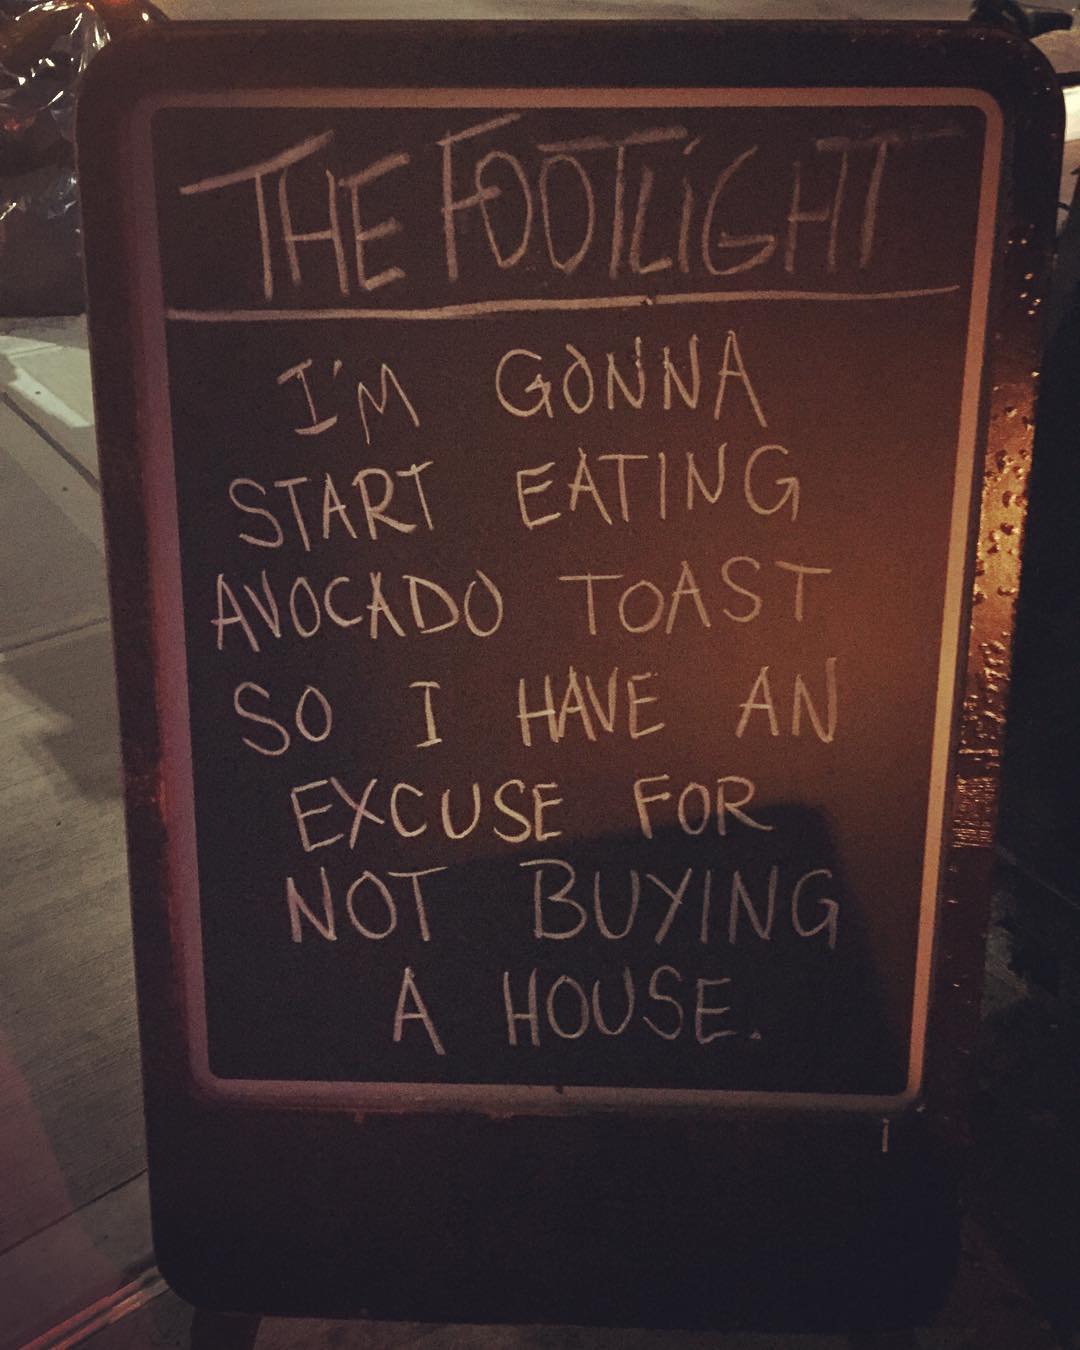 THE FOOTLIGHT
I'M GONNA
START EATING
AVOCADO TOAST
SO I HAVE AN
EXCUSE FOR
NOT BUYING
A HOUSE.